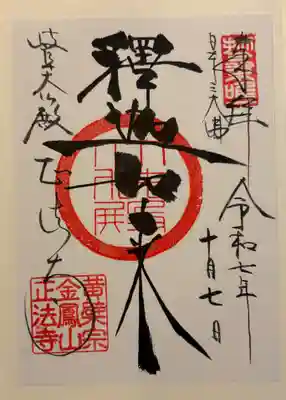 奉拝
日本三大佛
令和七年
十月七日
釋迦如来
大仏殿
正法寺
黄檗宗
金鳳山
正法寺